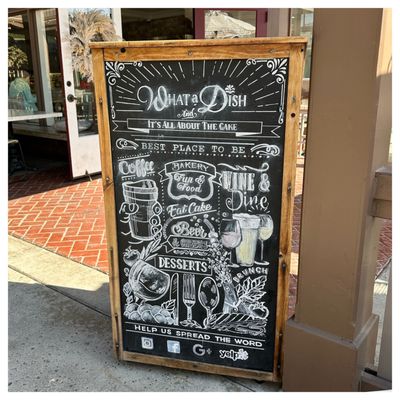 WHAT A DISH
And
IT'S ALL ABOUT THE CAKE
BEST PLACE TO BE
Coffee
BAKERY
Fun &
FOOD
WINE &
Dine
Eat Cake
Beer
DESSERTS
BRUNCH
HELP US SPREAD THE WORD
f
G+
yelp